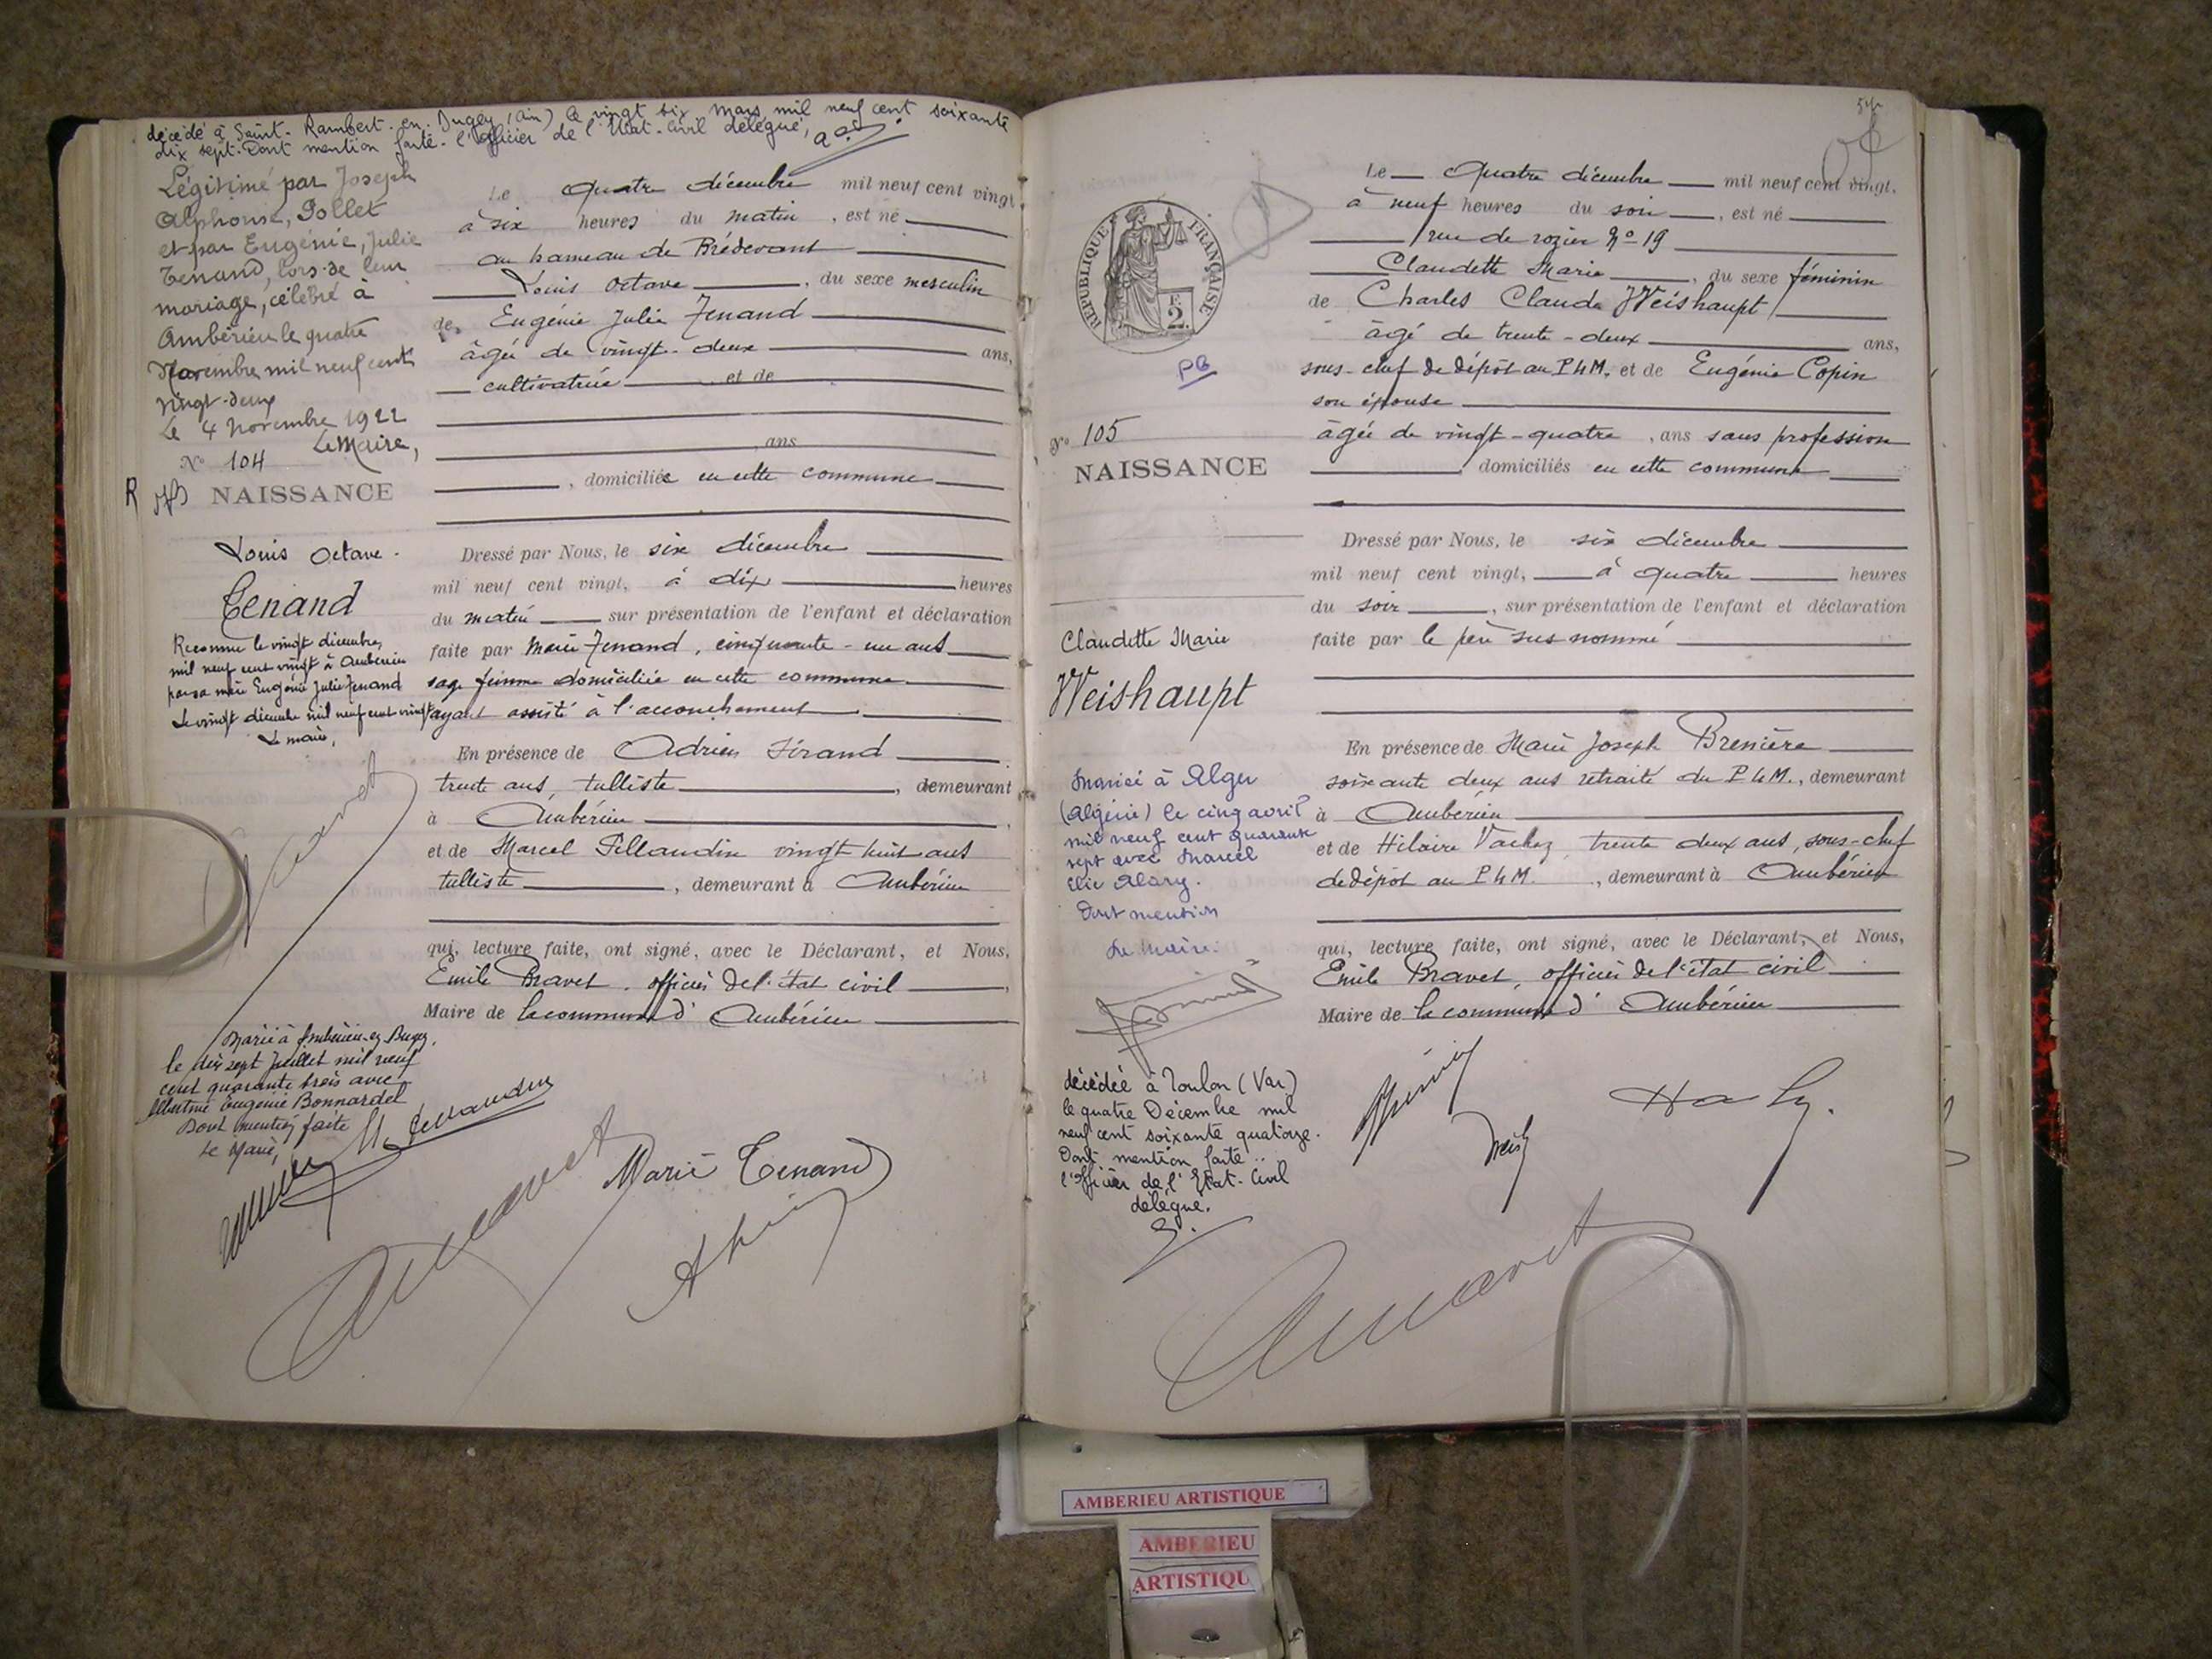 décédé à Saint-Rambert-en-Bugey (Ain) le vingt six mars mil neuf cent soixante
dix sept. Dont mention faite. l'Officier de l'Etat-Civil délégué,
Légitimé par Joseph
Alphonse, Pollet
et par Eugénie, Julie
Tenand, lors de leur
mariage, célébré à
Ambérieu le quatre
Novembre mil neuf cent
vingt-deux
Le 4 Novembre 1922
Le Maire,
N° 104
R
NAISSANCE
Louis Octave.
Tenand
Reconnu le vingt décembre,
mil neuf cent vingt à Ambérieu
par sa mère Eugénie Julie Tenand
Le vingt décembre mil neuf cent vingt
Le maire,
Marié à Ambérieu-en-Bugey,
le dix sept juillet mil neuf
cent quarante trois avec
Eugénie Bonnardel
Dont mention faite
Le Maire,
Le quatre décembre mil neuf cent vingt,
à six heures du matin, est né
au hameau de Brédevant
Louis Octave, du sexe masculin
de Eugénie Julie Tenand
âgée de vingt-deux ans,
cultivatrice et de
ans
, domiciliée en cette commune
Dressé par Nous, le six décembre
mil neuf cent vingt, à dix heures
du matin sur présentation de l'enfant et déclaration
faite par Marie Tenand, cinquante-un ans
sage femme domiciliée en cette commune
ayant assisté à l'accouchement
En présence de Adrien Férand
trente ans, tulliste, demeurant
à Ambérieu
et de Marcel Pillandin vingt huit ans
tulliste, demeurant à Ambérieu
qui, lecture faite, ont signé, avec le Déclarant, et Nous,
Emile Bravet, officier de l'état civil
Maire de la commune d' Ambérieu
Marie Tenand
RÉPUBLIQUE FRANÇAISE
F.
2.
PB
N° 105
NAISSANCE
Claudette Marie
Weishaupt
Mariée à Alger
(Algérie) le cinq avril
mil neuf cent quarante
sept avec Marcel
Elie Alary.
Dont mention
Le Maire.
décédée à Toulon (Var)
le quatre Décembre mil
neuf cent soixante quatorze.
Dont mention faite..
l'Officier de l'Etat-Civil
délégué.
Le quatre décembre mil neuf cent vingt,
à neuf heures du soir, est né
rue de rozier N° 19
Claudette Marie, du sexe féminin
de Charles Claude Weishaupt
âgé de trente-deux ans,
sous-chef de dépôt au PLM, et de Eugénie Copin
son épouse
âgée de vingt-quatre, ans sans profession
domiciliés en cette commune
Dressé par Nous, le six décembre
mil neuf cent vingt, à quatre heures
du soir, sur présentation de l'enfant et déclaration
faite par le père sus nommé
En présence de Marie Joseph Brenière
soixante deux ans retraité du P.L.M., demeurant
à Ambérieu
et de Hilaire Vachez trente deux ans, sous-chef
de dépôt au PLM., demeurant à Ambérieu
qui, lecture faite, ont signé, avec le Déclarant, et Nous,
Emile Bravet, officier de l'état civil
Maire de la commune d' Ambérieu
AMBERIEU ARTISTIQUE
AMBERIEU
ARTISTIQU